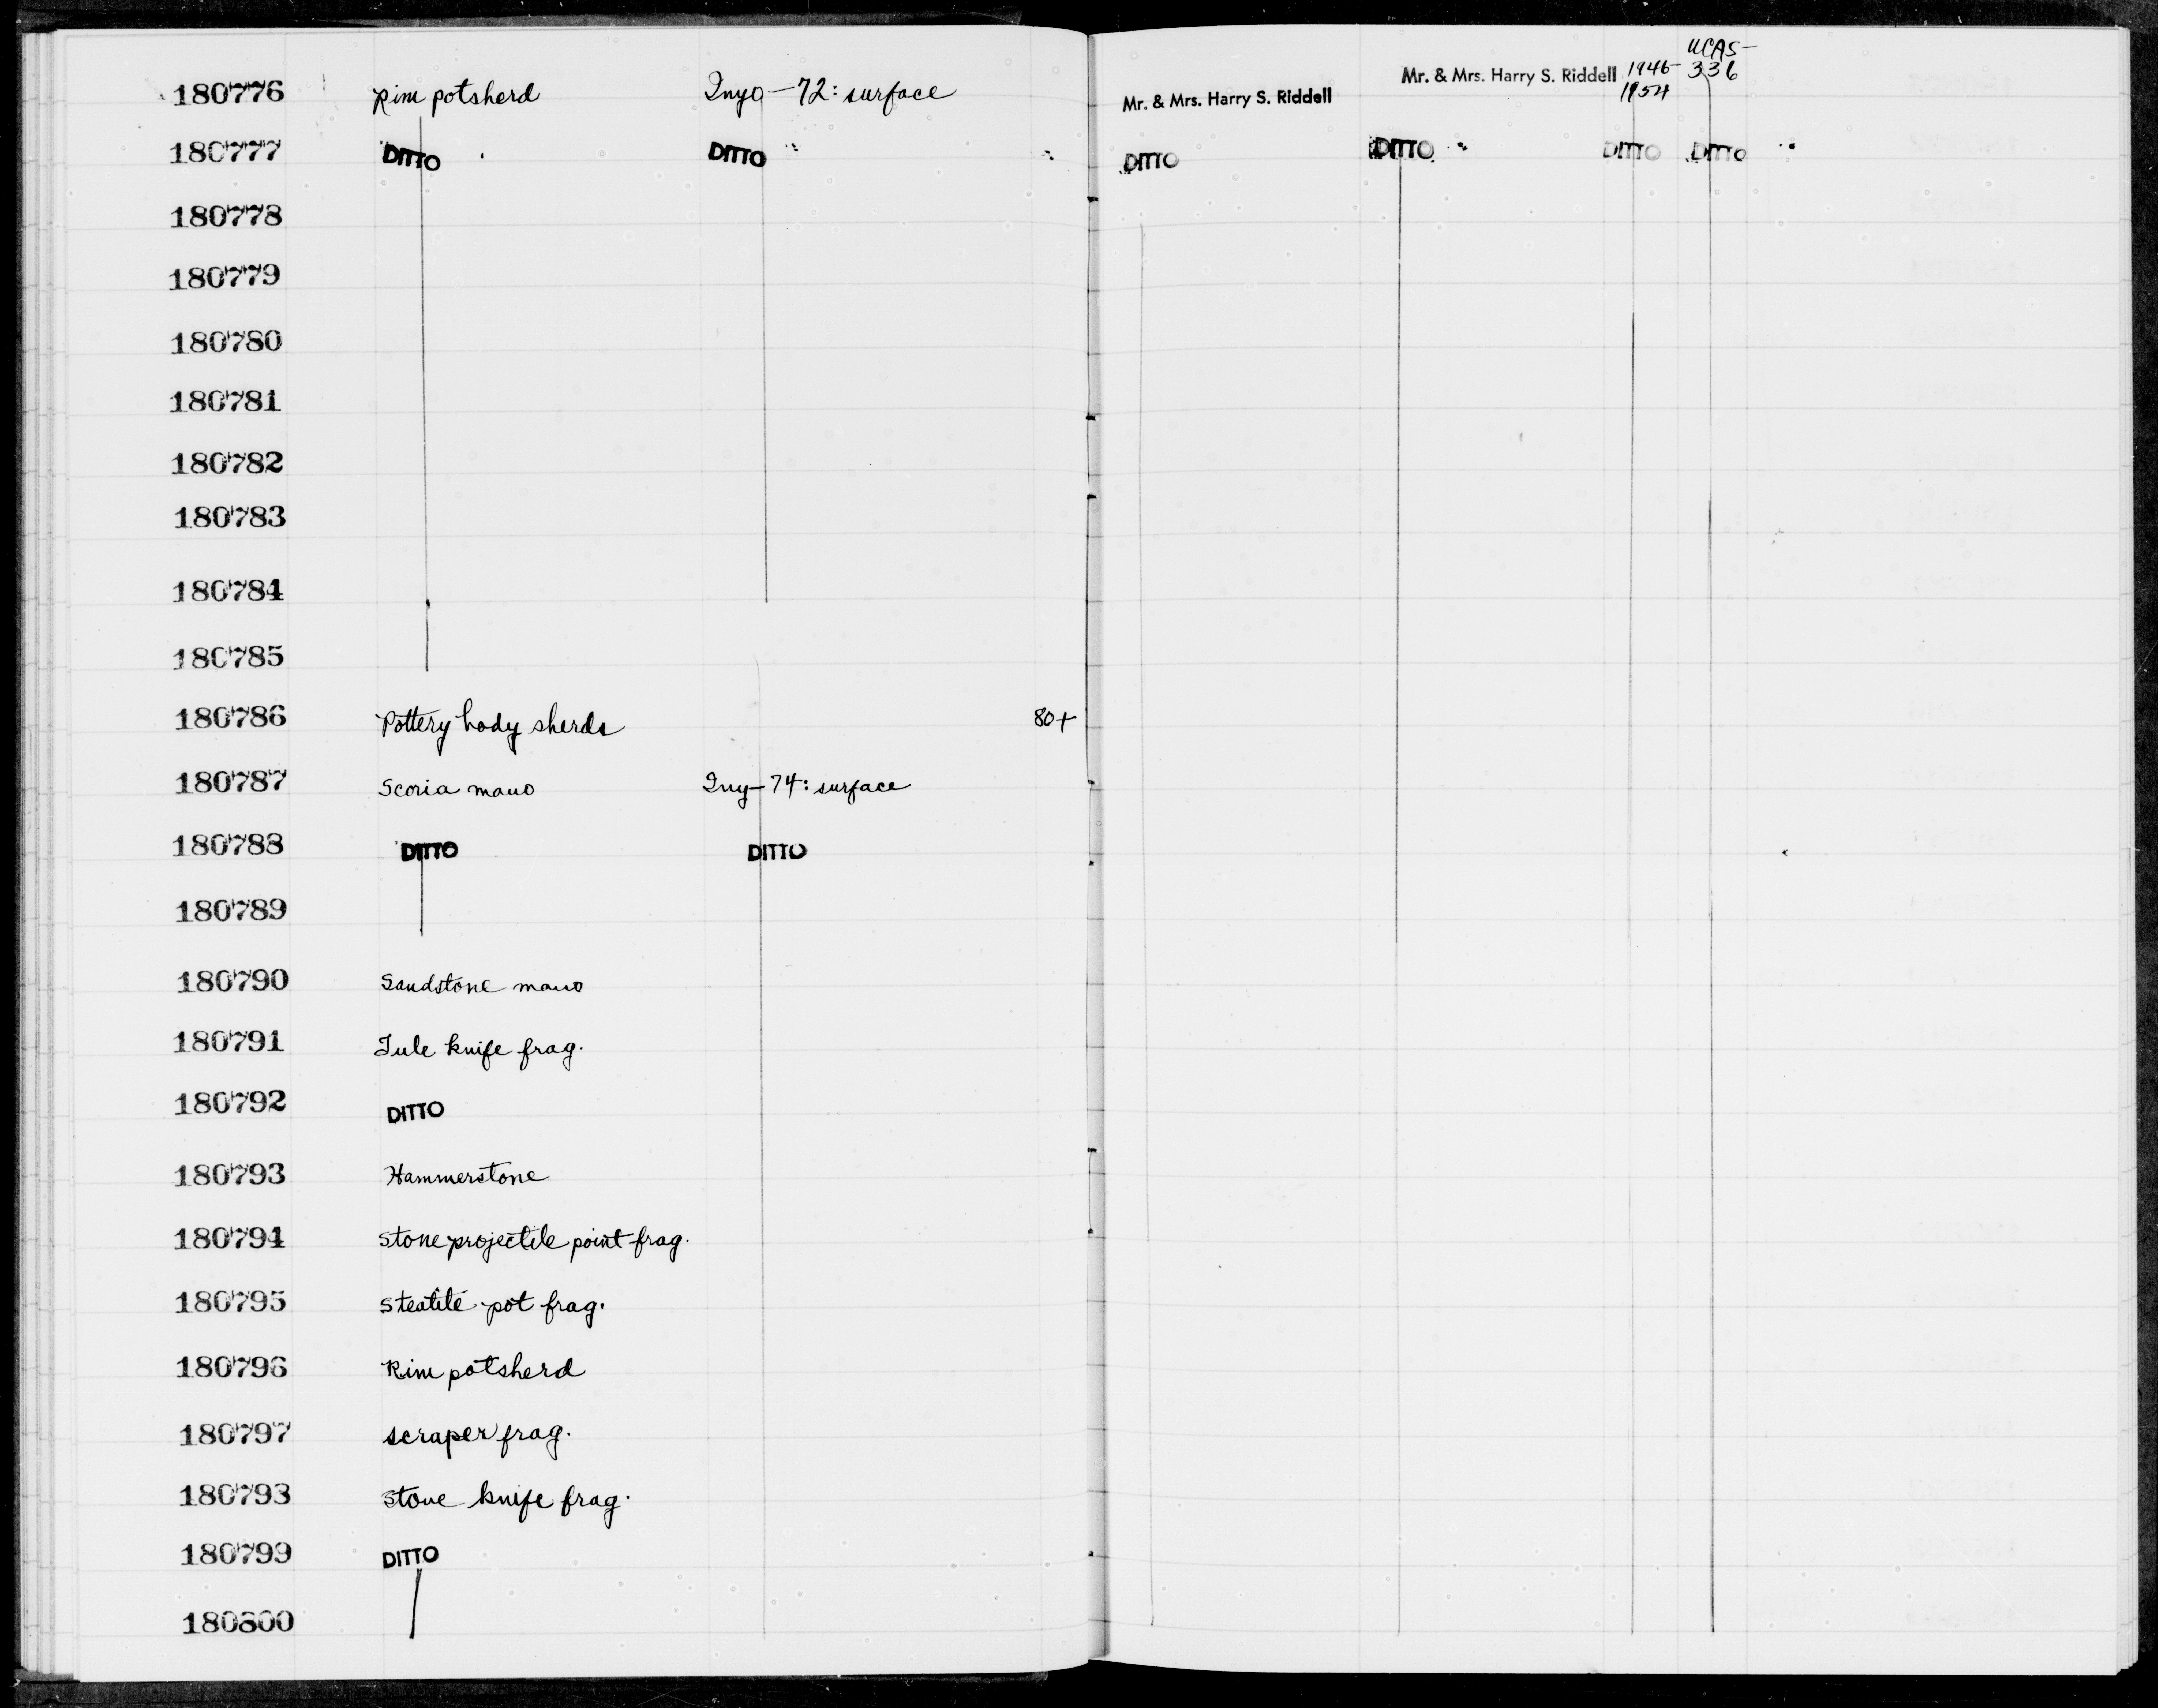 180776 Rim potsherd Inyo-72: surface Mr. & Mrs. Harry S. Riddell Mr. & Mrs. Harry S. Riddell 1946-1954 UCAS-336
180777 DITTO DITTO DITTO DITTO DITTO DITTO
180778
180779
180780
180781
180782
180783
180784
180785
180786 Pottery body sherds 80+
180787 Scoria mano Iny-74: surface
180788 DITTO DITTO
180789
180790 Sandstone mano
180791 Tule knife frag.
180792 DITTO
180793 Hammerstone
180794 Stone projectile point frag.
180795 Steatite pot frag.
180796 Rim potsherd
180797 scraper frag.
180798 Stone knife frag.
180799 DITTO
180800